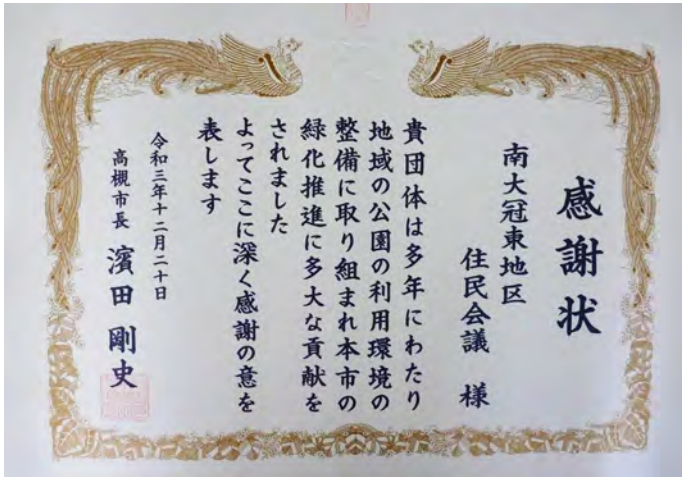 感謝状
南大冠東地区
住民会議 様
貴団体は多年にわたり
地域の公園の利用環境の
整備に取り組まれ本市の
緑化推進に多大な貢献を
されました
よってここに深く感謝の意を
表します
令和三年十二月二十日
高槻市長 濱田 剛史